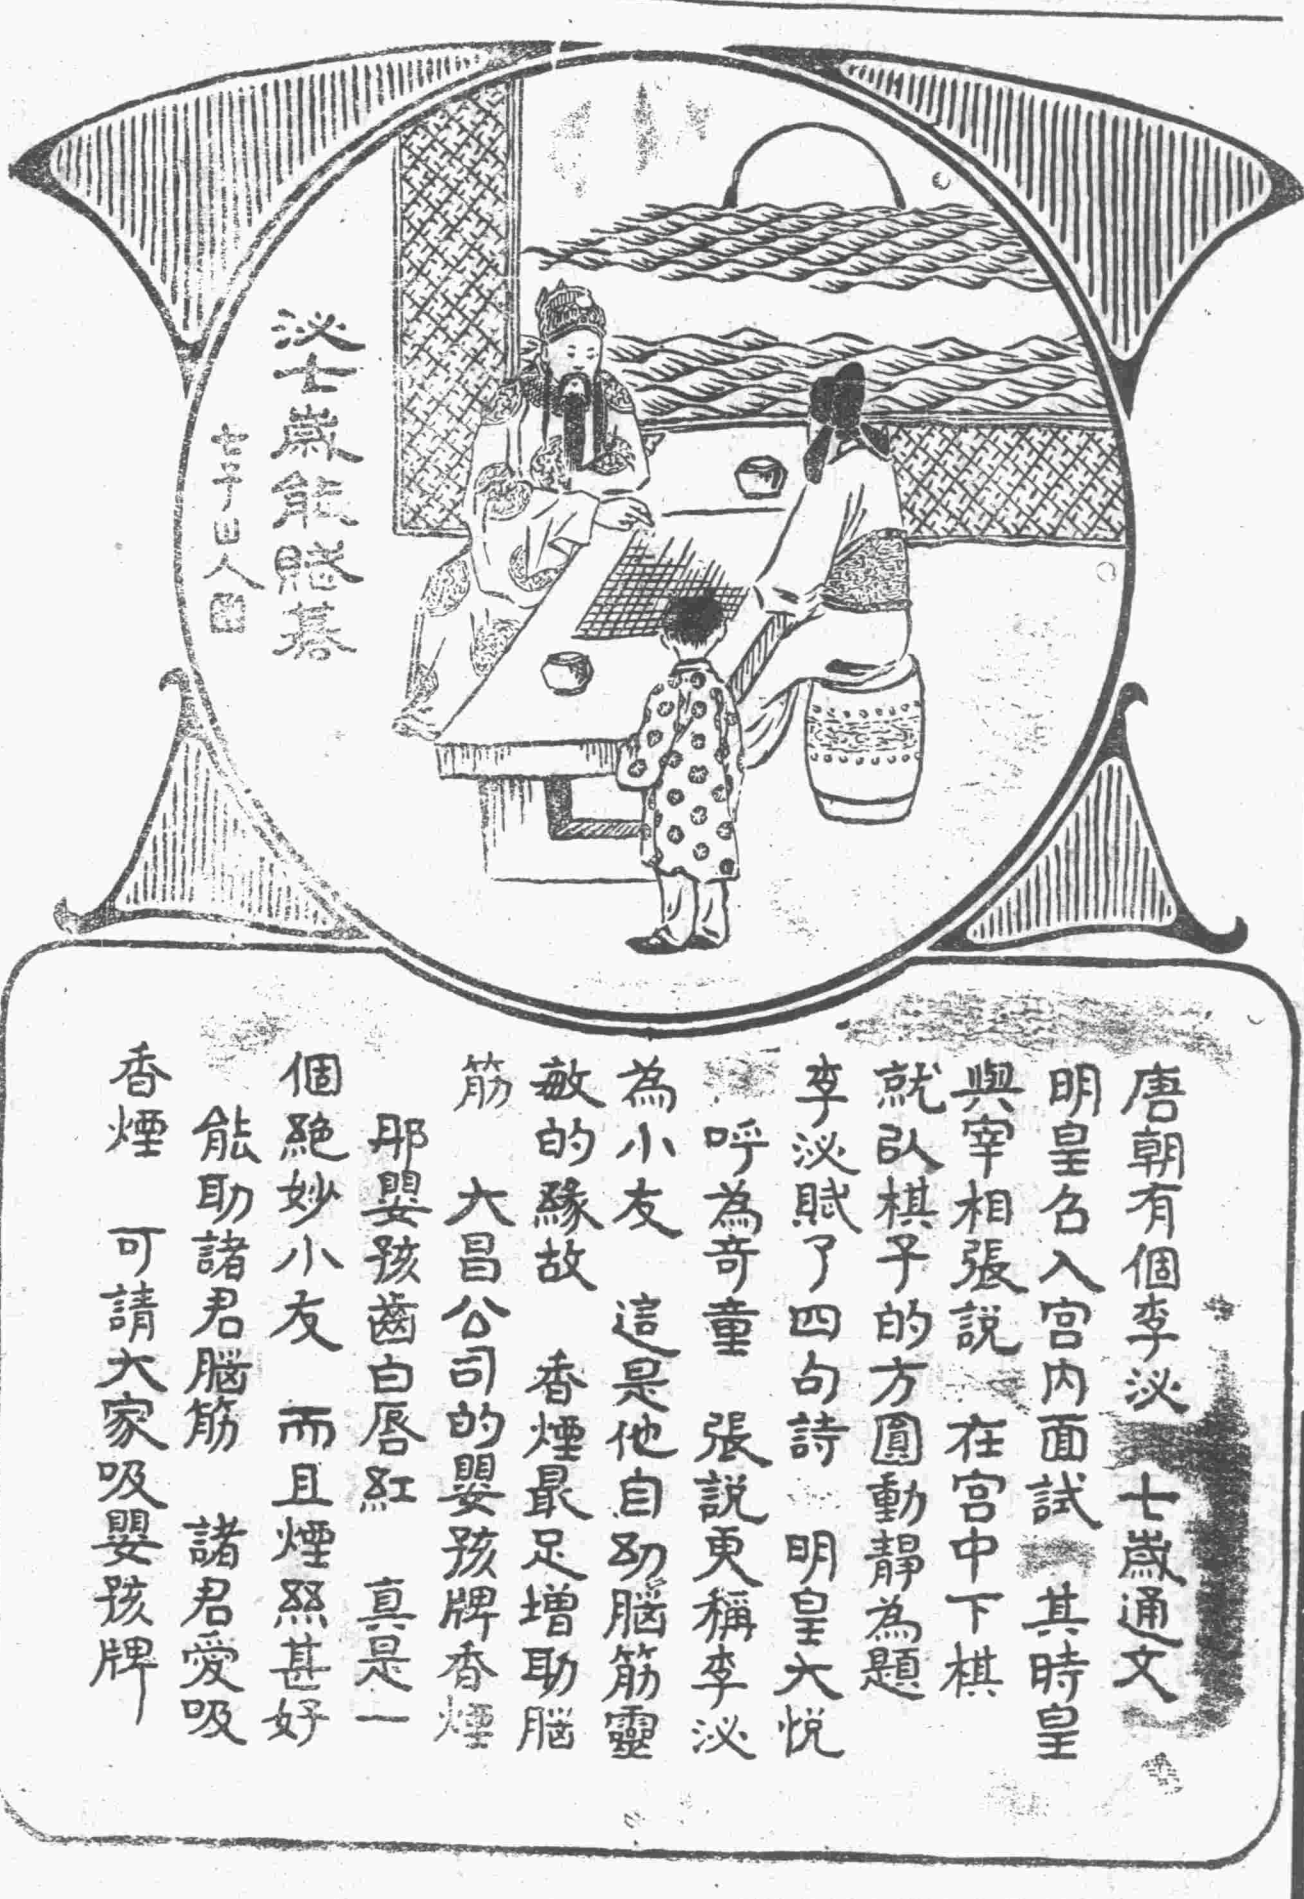 泌七歲能賦碁
七子山人
唐朝有個李泌 七歲通文
明皇召入宮內面試 其時皇
與宰相張說 在宮中下棋
就以棋子的方圓動靜為題
李泌賦了四句詩 明皇大悅
呼為奇童 張說更稱李泌
為小友 這是他自幼腦筋靈
敏的緣故 香煙最足增助腦
筋 大昌公司的嬰孩牌香煙
那嬰孩齒白唇紅 真是一
個絕妙小友 而且煙絲甚好
能助諸君腦筋 諸君愛吸
香煙 可請大家吸嬰孩牌